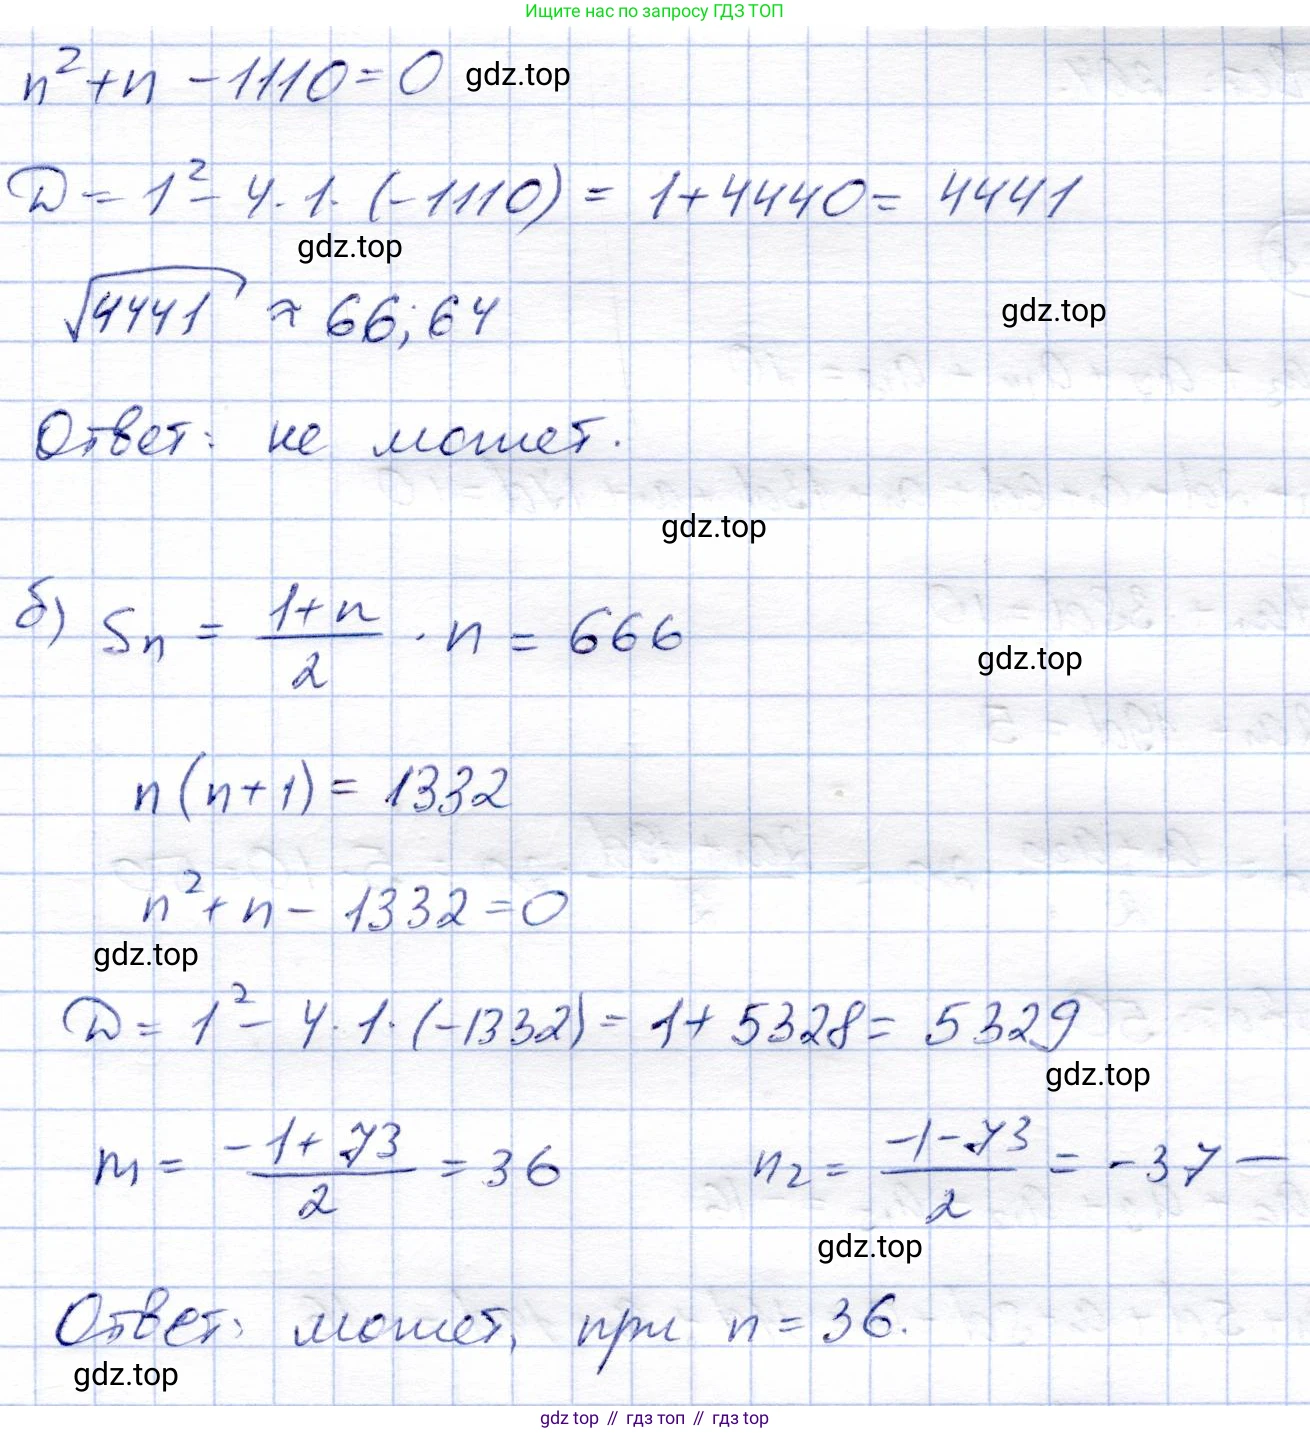 Ищите нас по запросу ГДЗ ТОП
n² + n - 1110 = 0 gdz.top
D = 1² - 4 · 1 · (-1110) = 1 + 4440 = 4441
gdz.top
√4441 ≈ 66,64
gdz.top
Ответ: не может.
gdz.top
б) Sn = (1+n)/2 · n = 666
gdz.top
n(n+1) = 1332
n² + n - 1332 = 0
gdz.top
D = 1² - 4 · 1 · (-1332) = 1 + 5328 = 5329
gdz.top
n₁ = (-1+73)/2 = 36 n₂ = (-1-73)/2 = -37 –
gdz.top
Ответ: может, при n = 36.
gdz.top
gdz top // гдз топ // gdz top